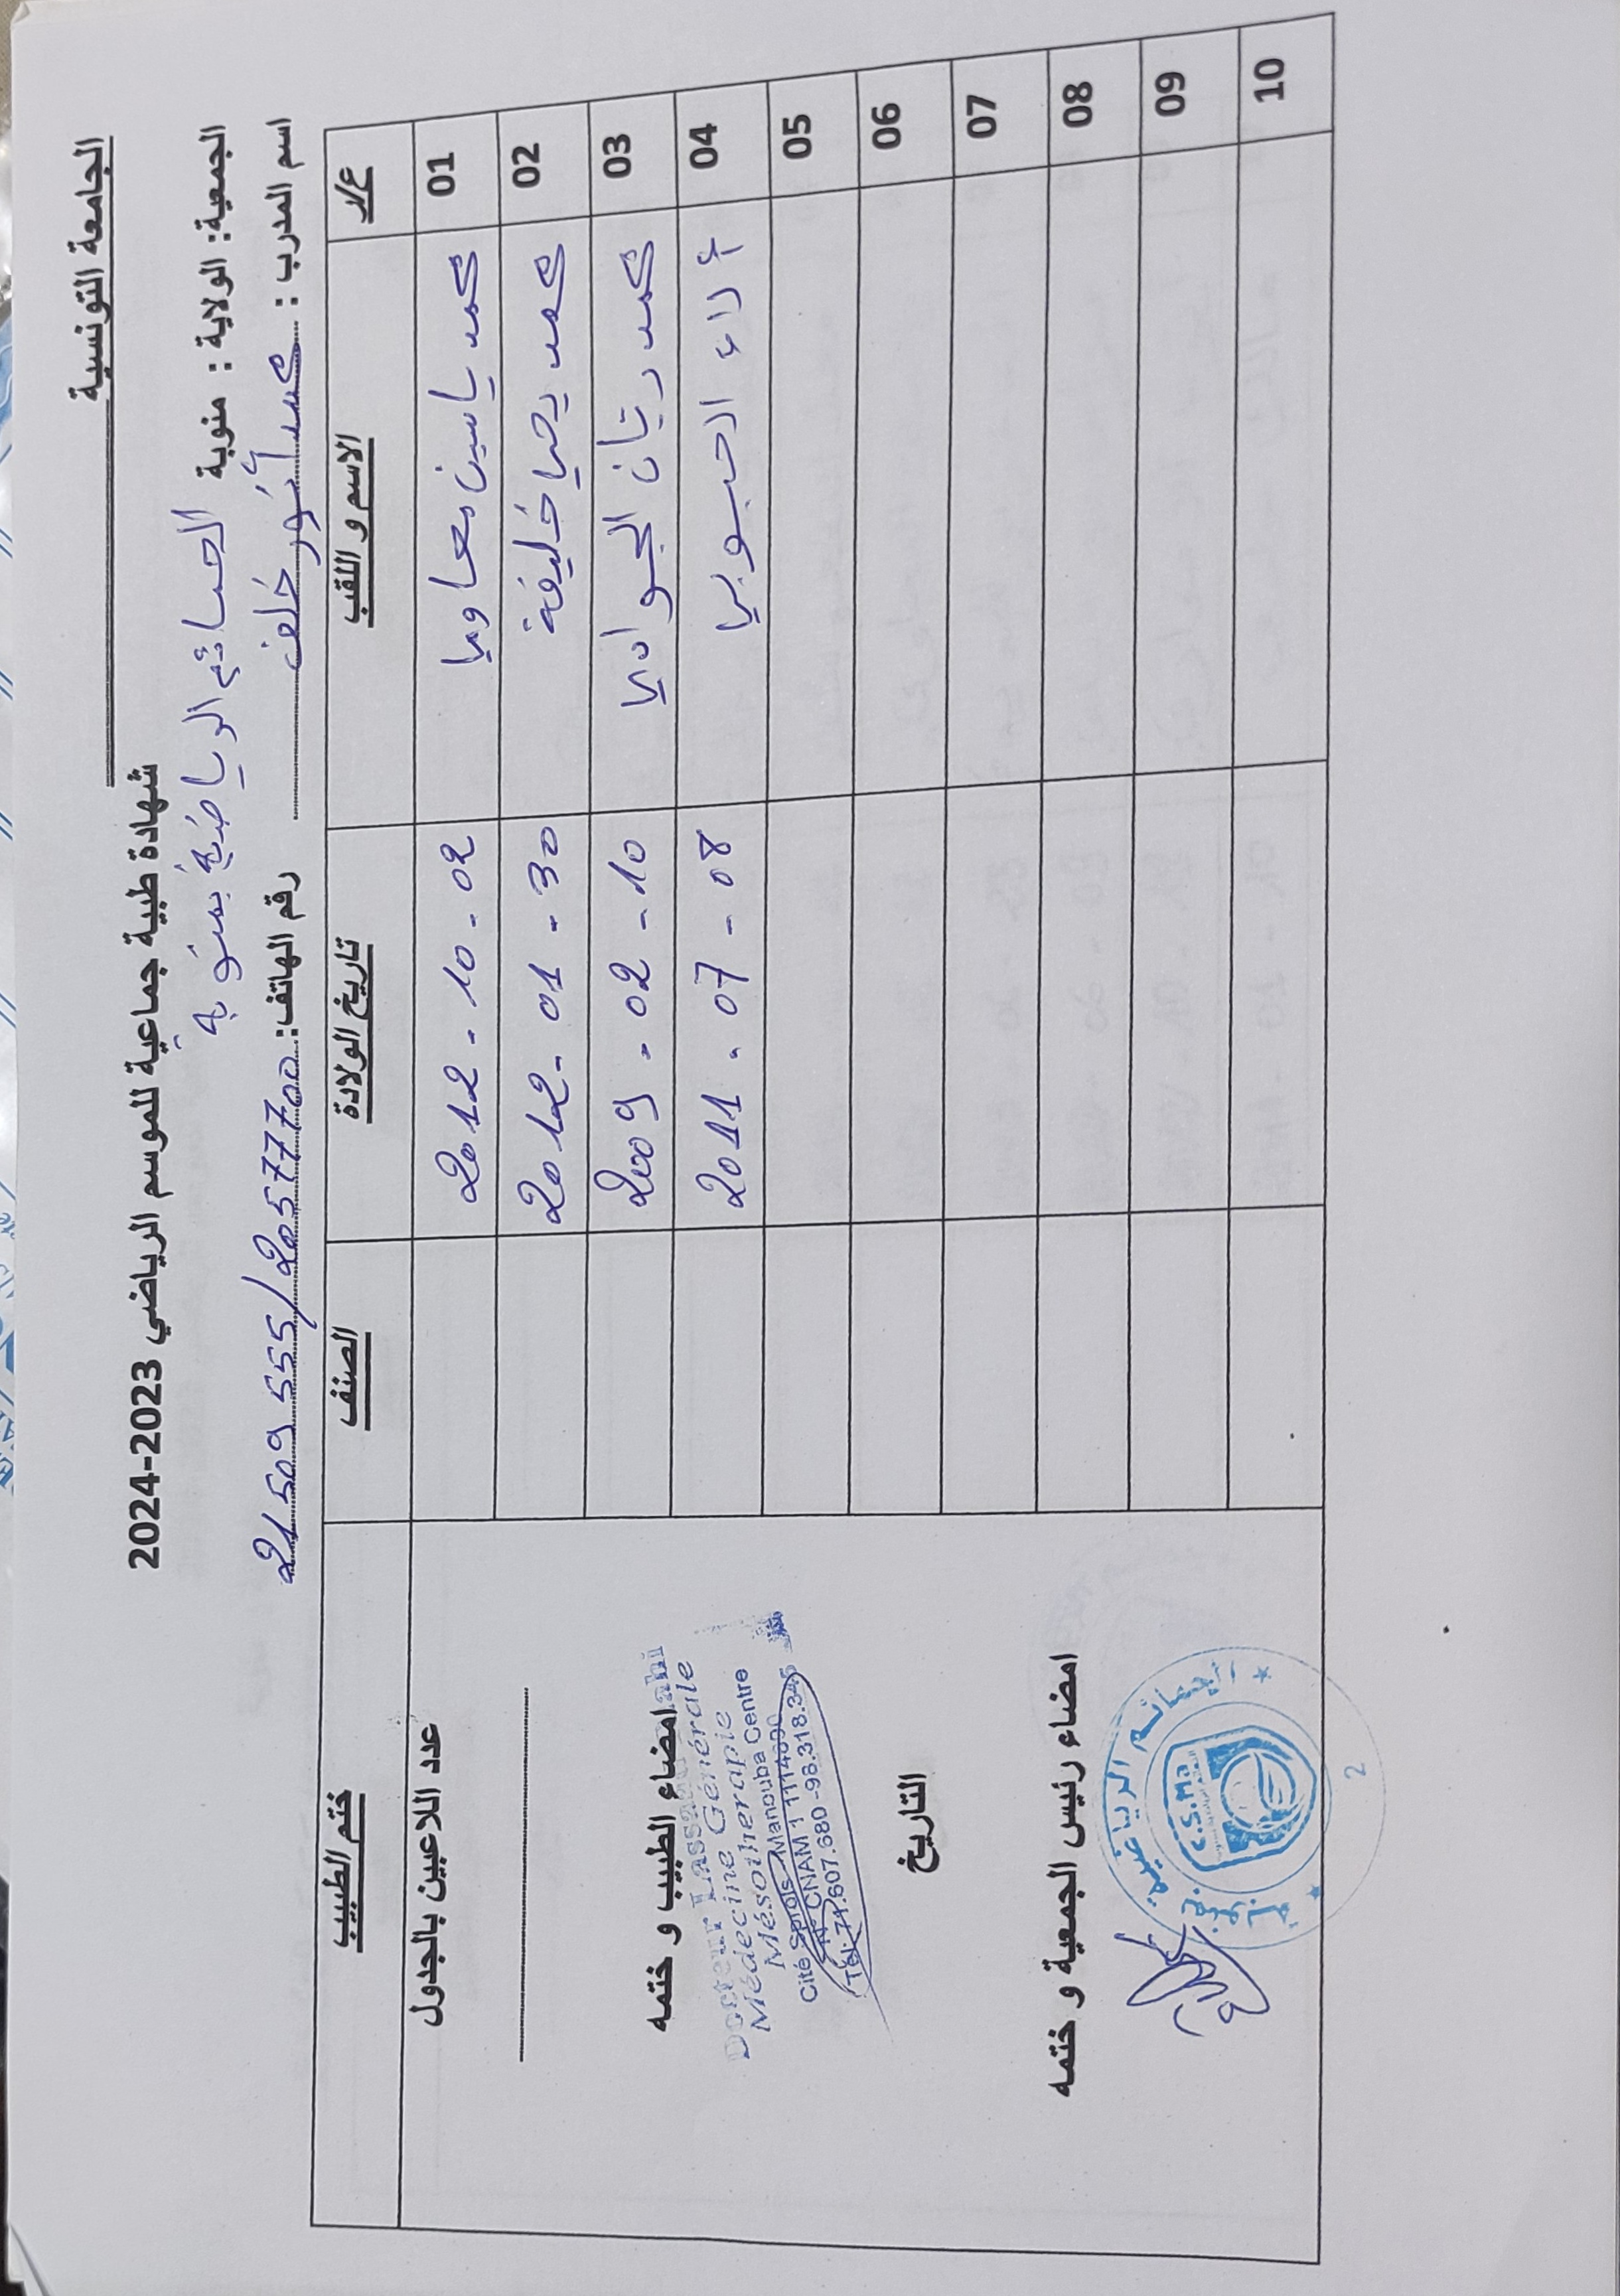 الجامعة التونسية
شهادة طبية جماعية للموسم الرياضي 2023-2024
الجمعية: الولاية : منوبة الحسائم الرياضية بمنوبة
اسم المدرب : محمد أنور خلف رقم الهاتف: 21509555/20577700
ع/ر الاسم و اللقب تاريخ الولادة الصنف ختم الطبيب
01 محمد ياسين معاويا 2012-10-02
02 محمد يحيا خليفة 2012-01-30
03 محمد ريان الجواديا 2009-02-10
04 ألاء الحبوبي 2011-07-08
05
06
07
08
09
10
عدد اللاعبين بالجدول
امضاء الطبيب و ختمه
Docteur Lassaad
Médecine Générale
Mésothérapie
Cité Sprols Manouba Centre
N° CNAM 1
Tél: 71.607.680 -98.318.345
التاريخ
امضاء رئيس الجمعية و ختمه
الرياضية
C.S.Ma
2